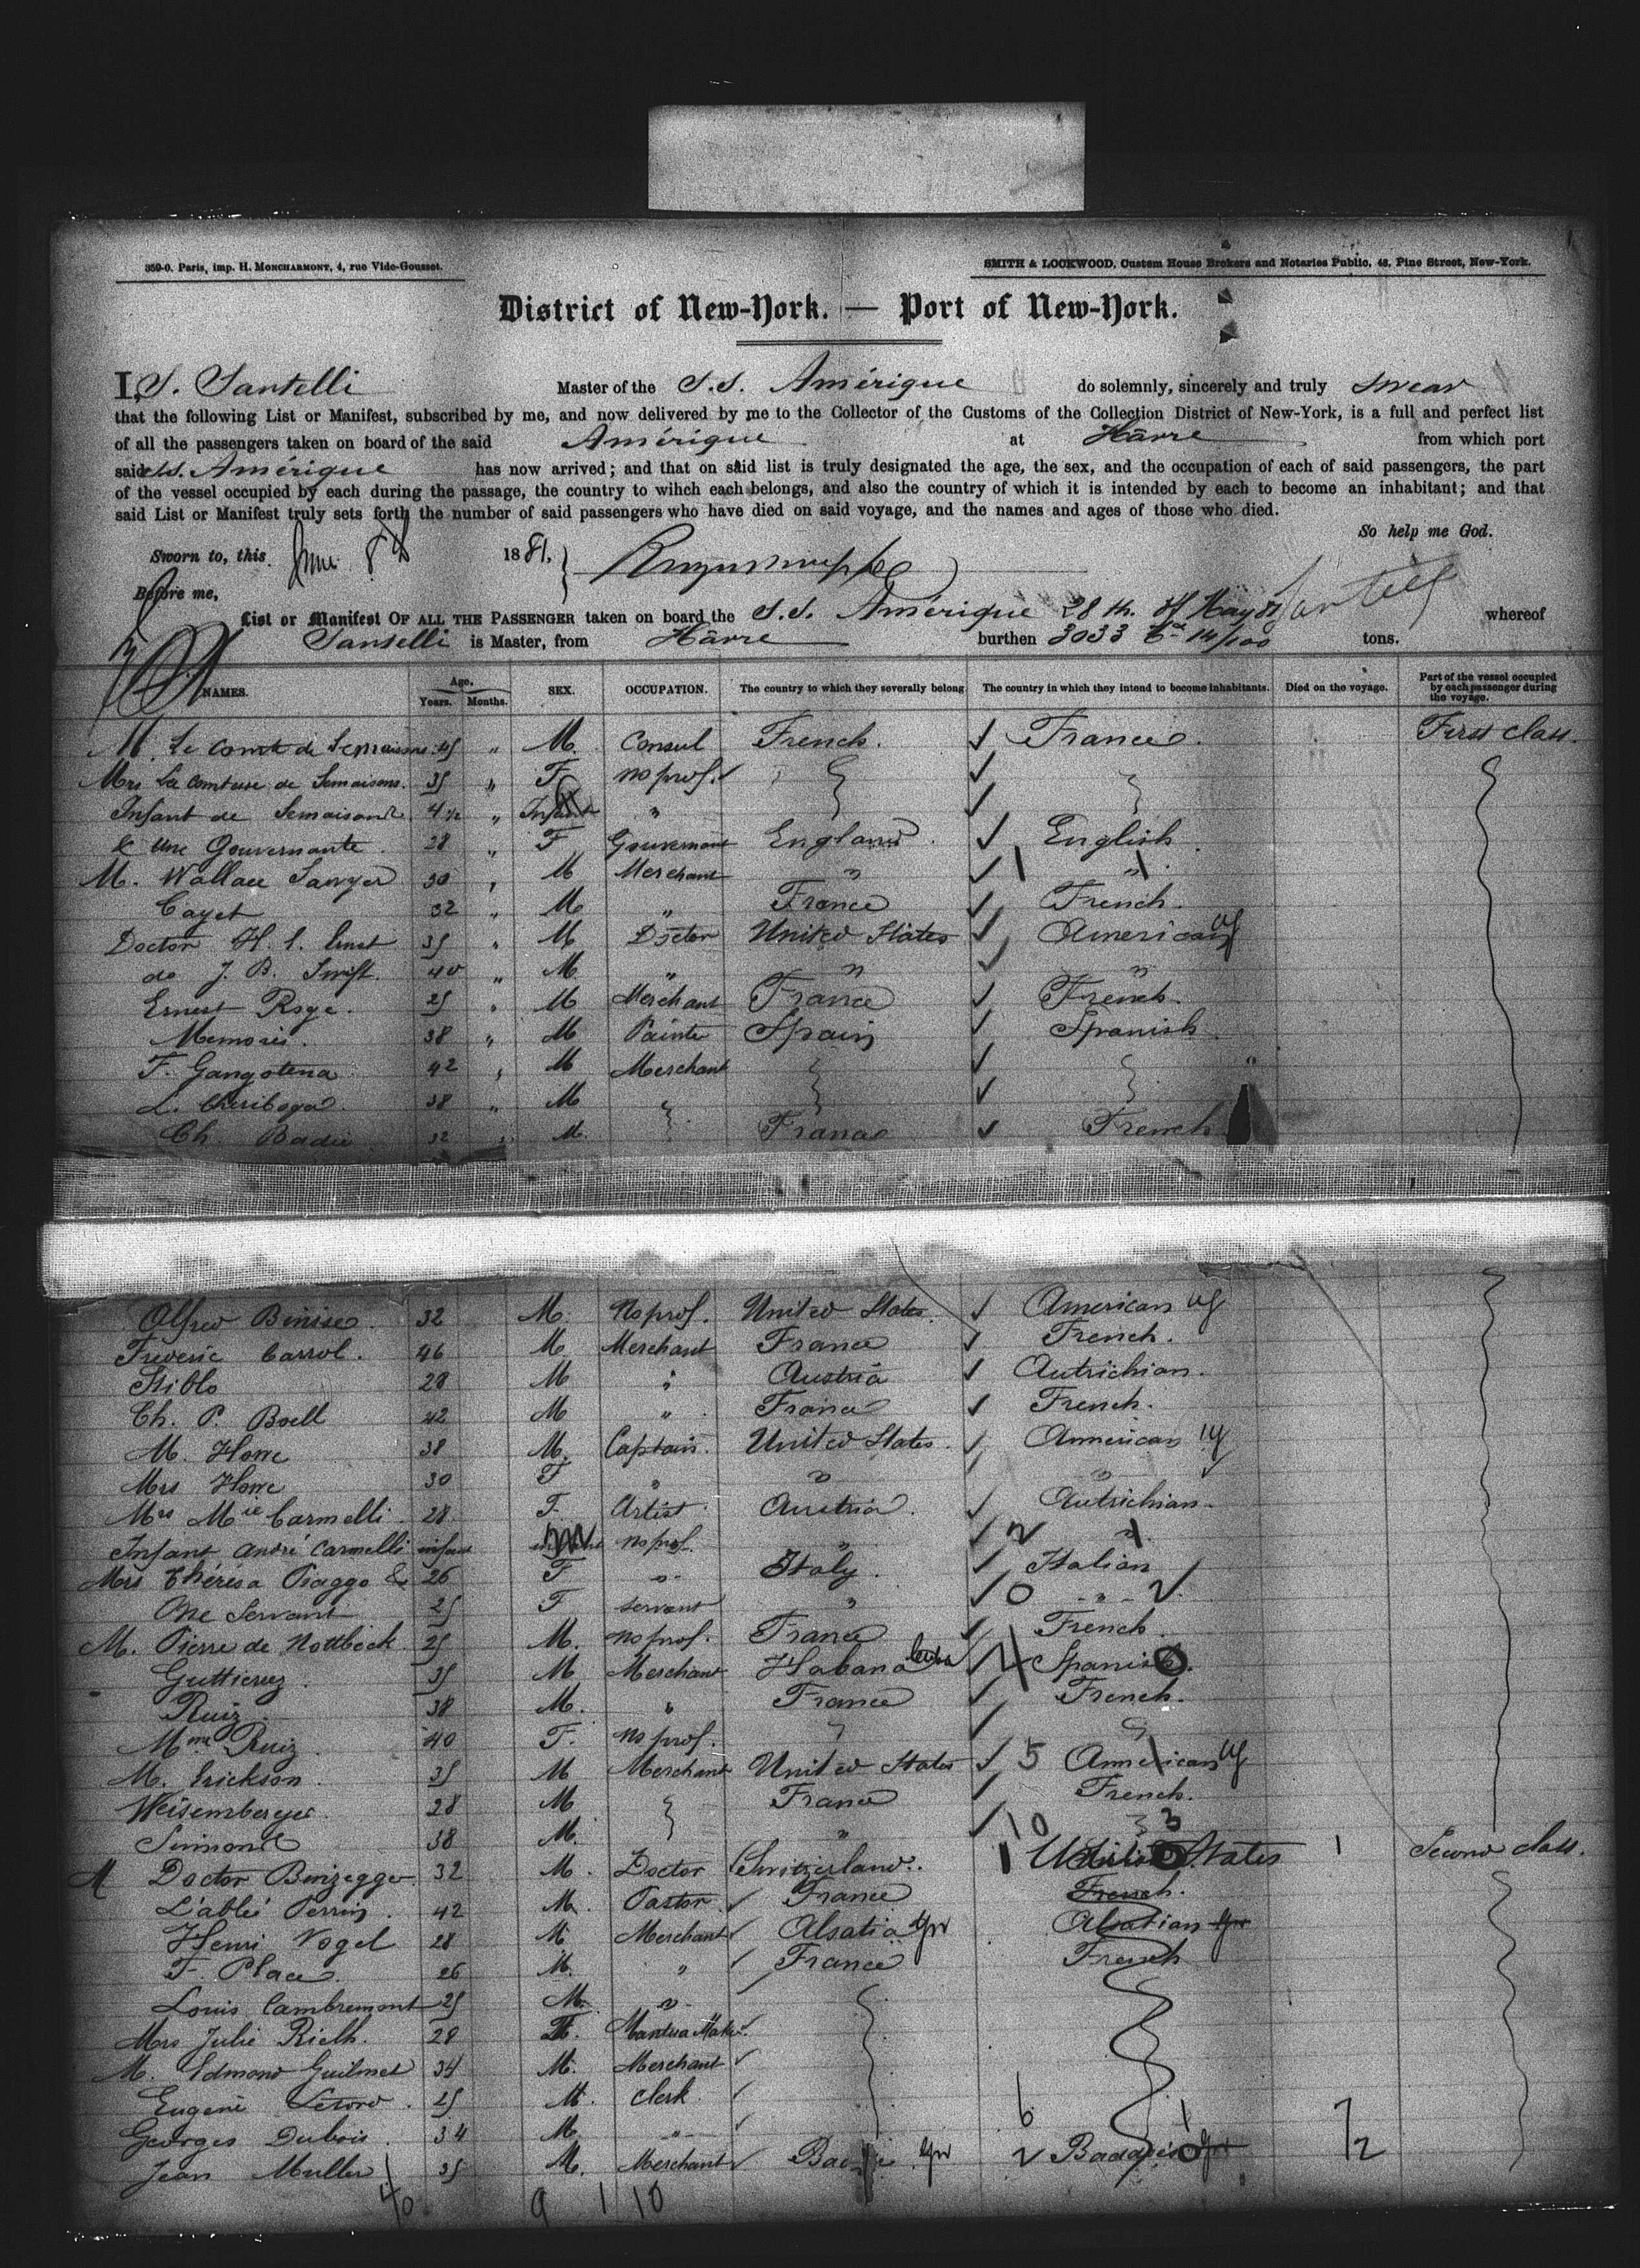 359-0. Paris, imp. H. MONCHARMONT, 4, rue Vide-Gousset.
SMITH & LOCKWOOD, Custom House Brokers and Notaries Public, 48, Pine Street, New-York.
District of New-York. — Port of New-York.
I, S. Santelli Master of the S.S. Amérique do solemnly, sincerely and truly swear
that the following List or Manifest, subscribed by me, and now delivered by me to the Collector of the Customs of the Collection District of New-York, is a full and perfect list
of all the passengers taken on board of the said Amérique at Hâvre from which port
said S.S. Amérique has now arrived; and that on said list is truly designated the age, the sex, and the occupation of each of said passengers, the part
of the vessel occupied by each during the passage, the country to wihch each belongs, and also the country of which it is intended by each to become an inhabitant; and that
said List or Manifest truly sets forth the number of said passengers who have died on said voyage, and the names and ages of those who died.
So help me God.
Sworn to, this June 8th 1881,
Before me,
Santelli
List or Manifest OF ALL THE PASSENGER taken on board the S.S. Amérique 28th. of May 81 whereof
Santelli is Master, from Hâvre burthen 3033 tx 14/100 tons.
NAMES. Age. Years. Months. SEX. OCCUPATION. The country to which they severally belong The country in which they intend to become inhabitants. Died on the voyage. Part of the vessel occupied by each passenger during the voyage.
M. Le Comte de 45 " M. Consul French. ✓ France. First class.
Mrs La Comtesse de Semaisons. 35 " F no prof. ✓
Infant de Semaisons. 4 1/2 " Infant " ✓
& Une Gouvernante 28 " F Gouvernant England ✓ English
M. Wallace Sawyer 30 " M Merchant " ✓ 1 " 1
Cayet 32 " M " France ✓ French.
Doctor H. Ernst 35 " M Doctor United States ✓ American
do J. B. Swift. 40 " M " " ✓ "
Ernest Roge. 25 " M Merchant France ✓ French.
38 " M Painter Spain ✓ Spanish
F. Gangotena 42 " M Merchant ✓ "
L. Chiriboga 38 " M ✓
Ch. Badie 32 " M. France ✓ French
Alfred 32 M. No prof. United States. ✓ American
Frederic Carrol. 46 M Merchant France ✓ French.
Stiblo 28 M " Austria ✓ Autrichian.
Ch. P. Boell 42 M " France ✓ French.
M. Howe 38 M. Captain. United States. ✓ American
Mrs Howe 30 F " " ✓ "
Mrs Mie Carmelli. 28 F. Artist Austria. ✓ Autrichian.
Infant André Carmelli infant no prof. " ✓ 2 " 1
Mrs Thérésa Piaggo & 26 F " Italy. ✓ Italian
One Servant 25 F servant " ✓ 0 " 2
M. Pierre de Nottbeck 25 M. no prof. France ✓ French.
Guttierez 35 M Merchant Habana Cuba ✓ Spanish.
Ruiz 38 M. " France ✓ French.
Mme Ruiz. 40 F. no prof. ✓
M. Erickson. 35 M Merchant United States ✓ 5 American
Weisemberger. 28 M France ✓ French.
Simond 38 M. " ✓ 10 3
M Doctor Binzegger 32 M. Doctor Switzerland. 1 United States 1 Second class.
L'abbé Perrin. 42 M. Pastor ✓ France French.
Henri Vogel 28 M Merchant ✓ Alsatia Alsatian
F. Place. 26 M. " ✓ France French
Louis Cambremont 25 M. "
Mrs Julie Rieth. 28 F. Mantua Maker.
M. Edmond Guilmet 34 M. Merchant ✓
Eugène Letord. 25 M. Clerk ✓
Georges Dubois. 34 M. " ✓ 6 1 7
Jean Muller 35 M. Merchant ✓ 2 0 2
40 9 1 10